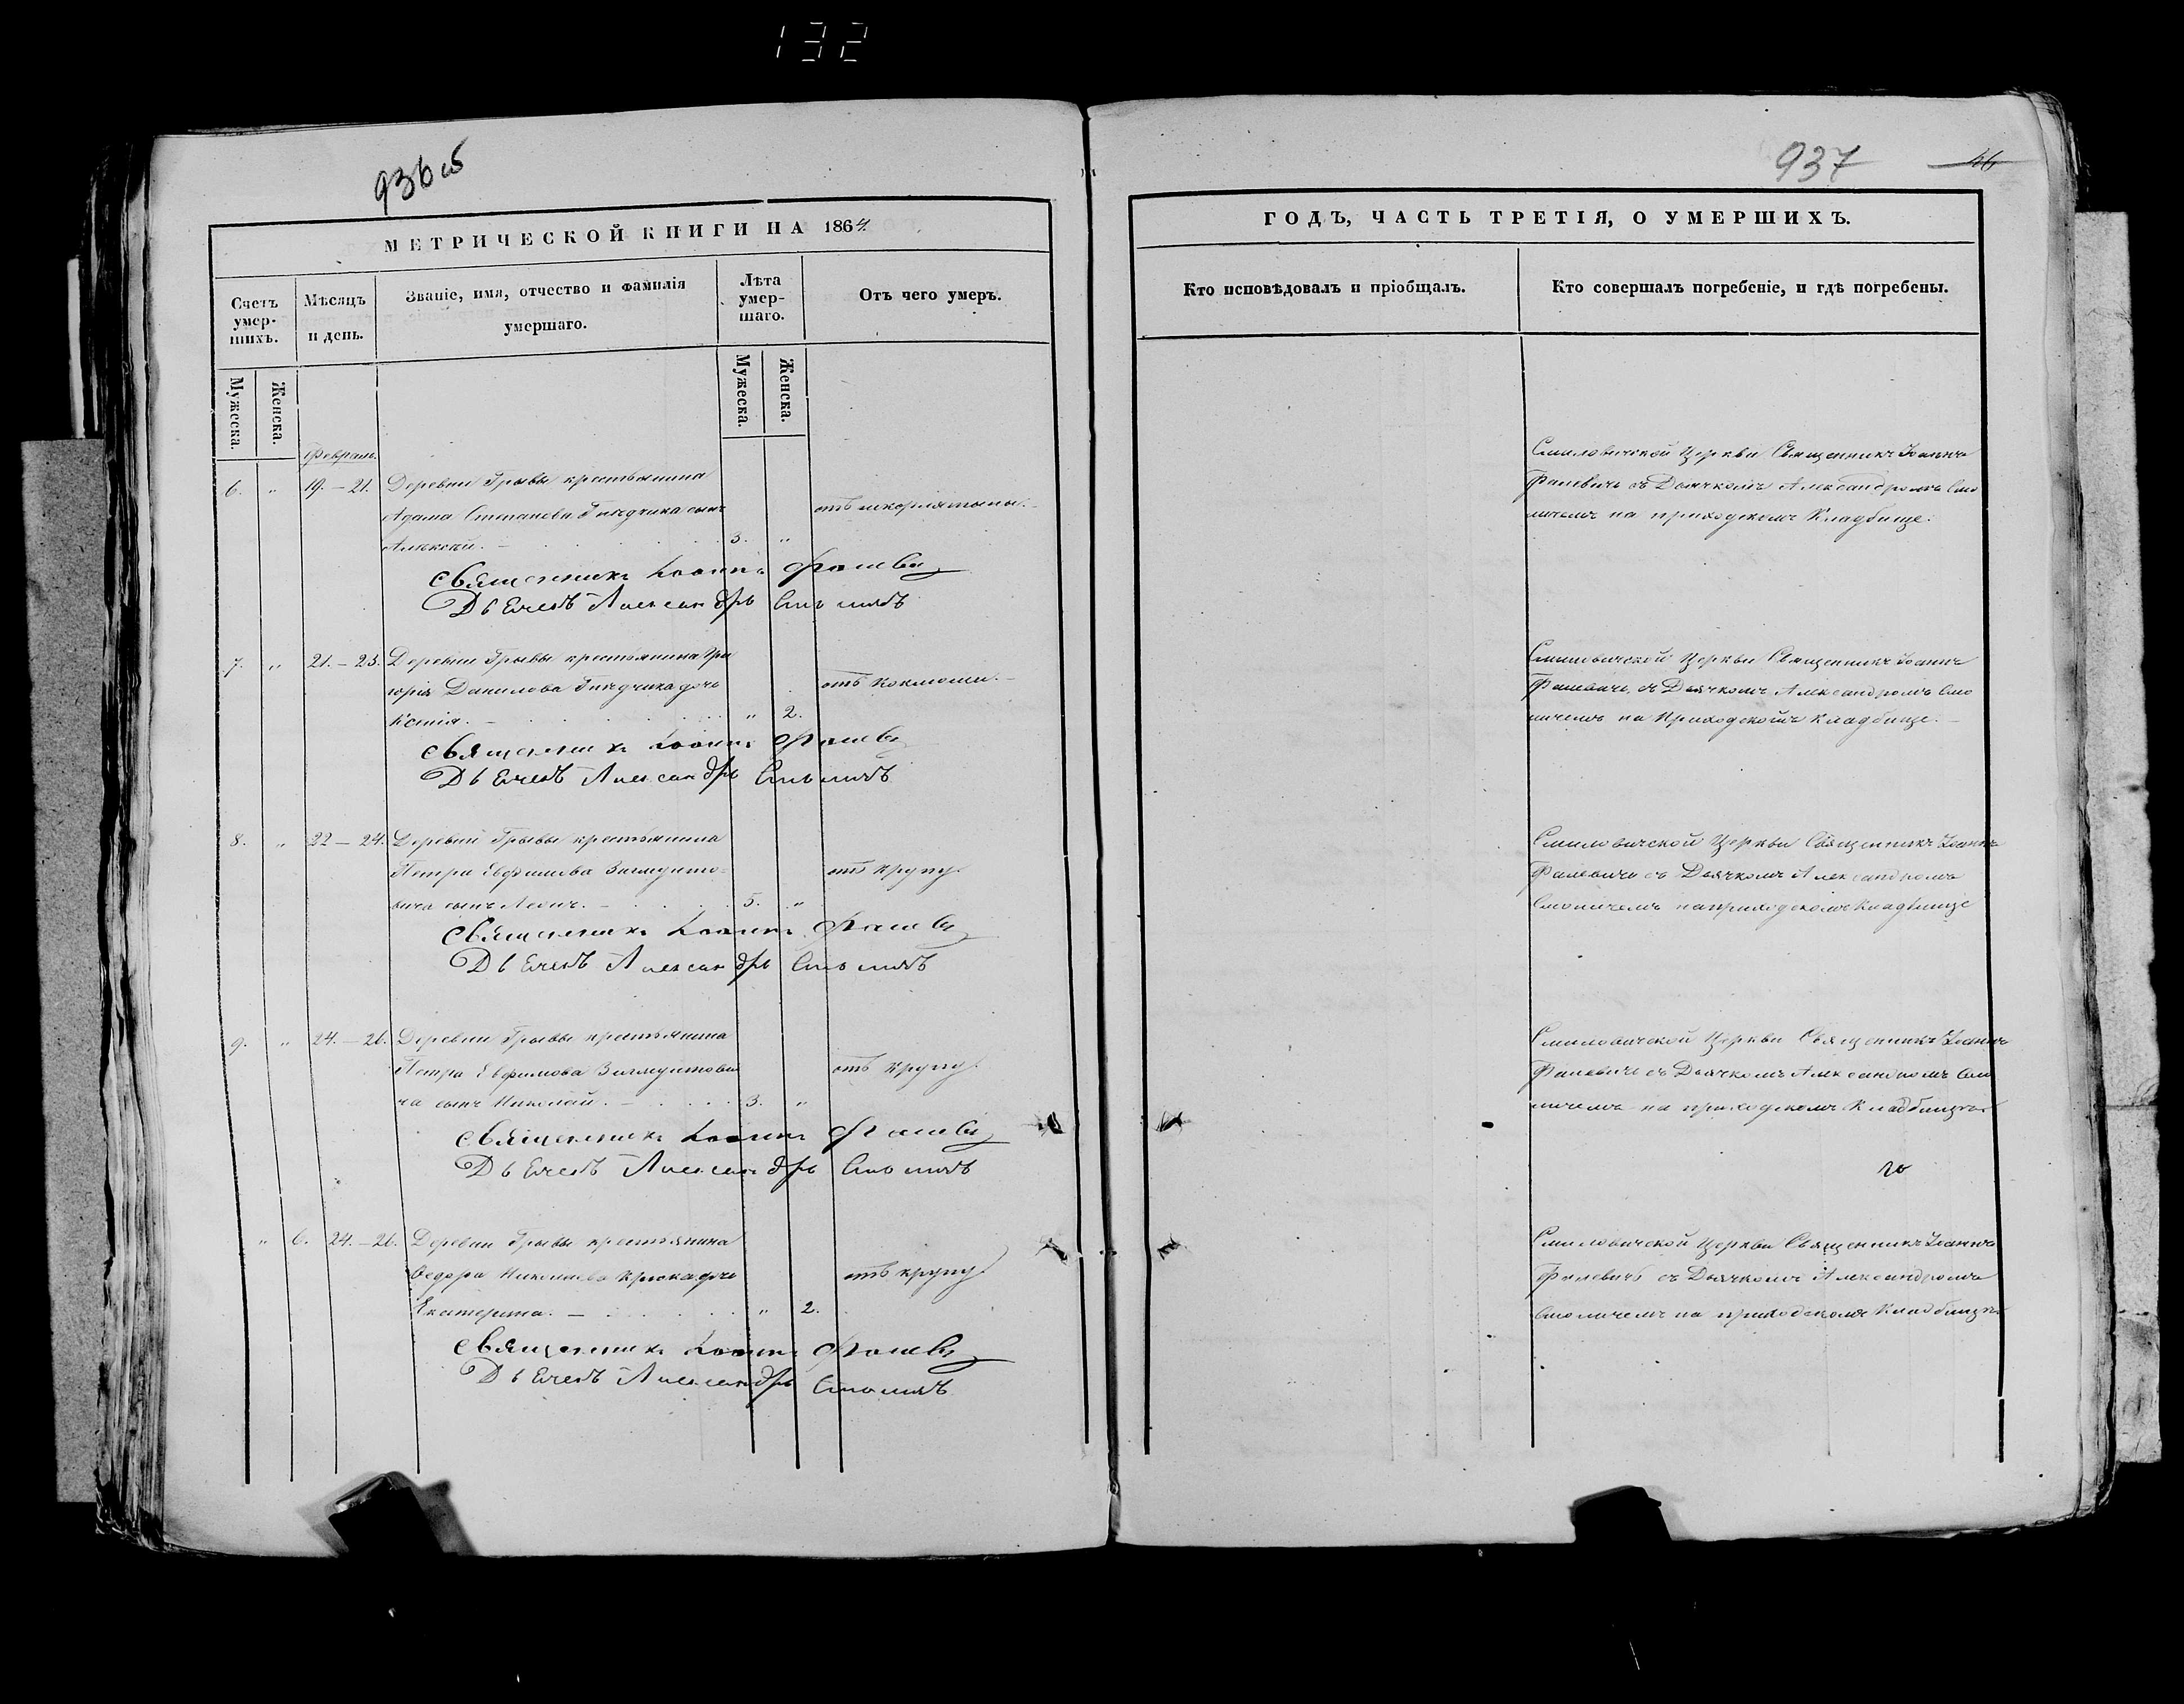 132
936 об
МЕТРИЧЕСКОЙ КНИГИ НА 1864
Счетъ умер-шихъ.
Мѣсяцъ и день.
Званіе, имя, отчество и фамилія умершаго.
Лѣта умер-шаго.
Отъ чего умеръ.
Мужеска.
Женска.
Мужеска.
Женска.
Февраль.
6. „ 19.–21. Деревни Гривы крестьянина
Адама Степанова сынъ
Алексѣй. – 3. „
Священникъ Іоаннъ Фалевич
Дьячекъ Александръ
7. „ 21.–23. Деревни Гривы крестьянина Гри
горія Данилова дочь
Ксенія. – „ 2. отъ коклюша. –
Священникъ Іоаннъ Фалевич
Дьячекъ Александръ
8. „ 22–24. Деревни Гривы крестьянина
Петра Евфимова
вича сынъ – 5. „ отъ крупу.
Священникъ Іоаннъ Фалевич
Дьячекъ Александръ
9. „ 24.–26. Деревни Гривы крестьянина
Петра Евфимова
ча сынъ Николай. – 3. „ отъ крупу.
Священникъ Іоаннъ Фалевич
Дьячекъ Александръ
„ 6. 24.–26. Деревни Гривы крестьянина
Ѳедора Николаева дочь
Екатерина. – „ 2. отъ крупу
Священникъ Іоаннъ Фалевич
Дьячекъ Александръ
937 46
ГОДЪ, ЧАСТЬ ТРЕТІЯ, О УМЕРШИХЪ.
Кто исповѣдовалъ и пріобщалъ.
Кто совершалъ погребеніе, и гдѣ погребены.
Смиловичской Церкви Священникъ Іоаннъ
Фалевичъ съ Дьячкомъ Александромъ Смо
личемъ на приходскомъ Кладбище.
Смиловичской Церкви Священникъ Іоаннъ
Фалевичъ съ Дьячкомъ Александромъ Смо
личемъ на Приходскомъ Кладбище. –
Смиловичской Церкви Священникъ Іоаннъ
Фалевичъ съ Дьячкомъ Александромъ
Смоличемъ на приходскомъ Кладбище
Смиловичской Церкви Священникъ Іоаннъ
Фалевичъ съ Дьячкомъ Александромъ Смо
личемъ на приходскомъ Кладбище
Смиловичской Церкви Священникъ Іоаннъ
Фалевичъ съ Дьячкомъ Александромъ
Смоличемъ на приходскомъ Кладбище